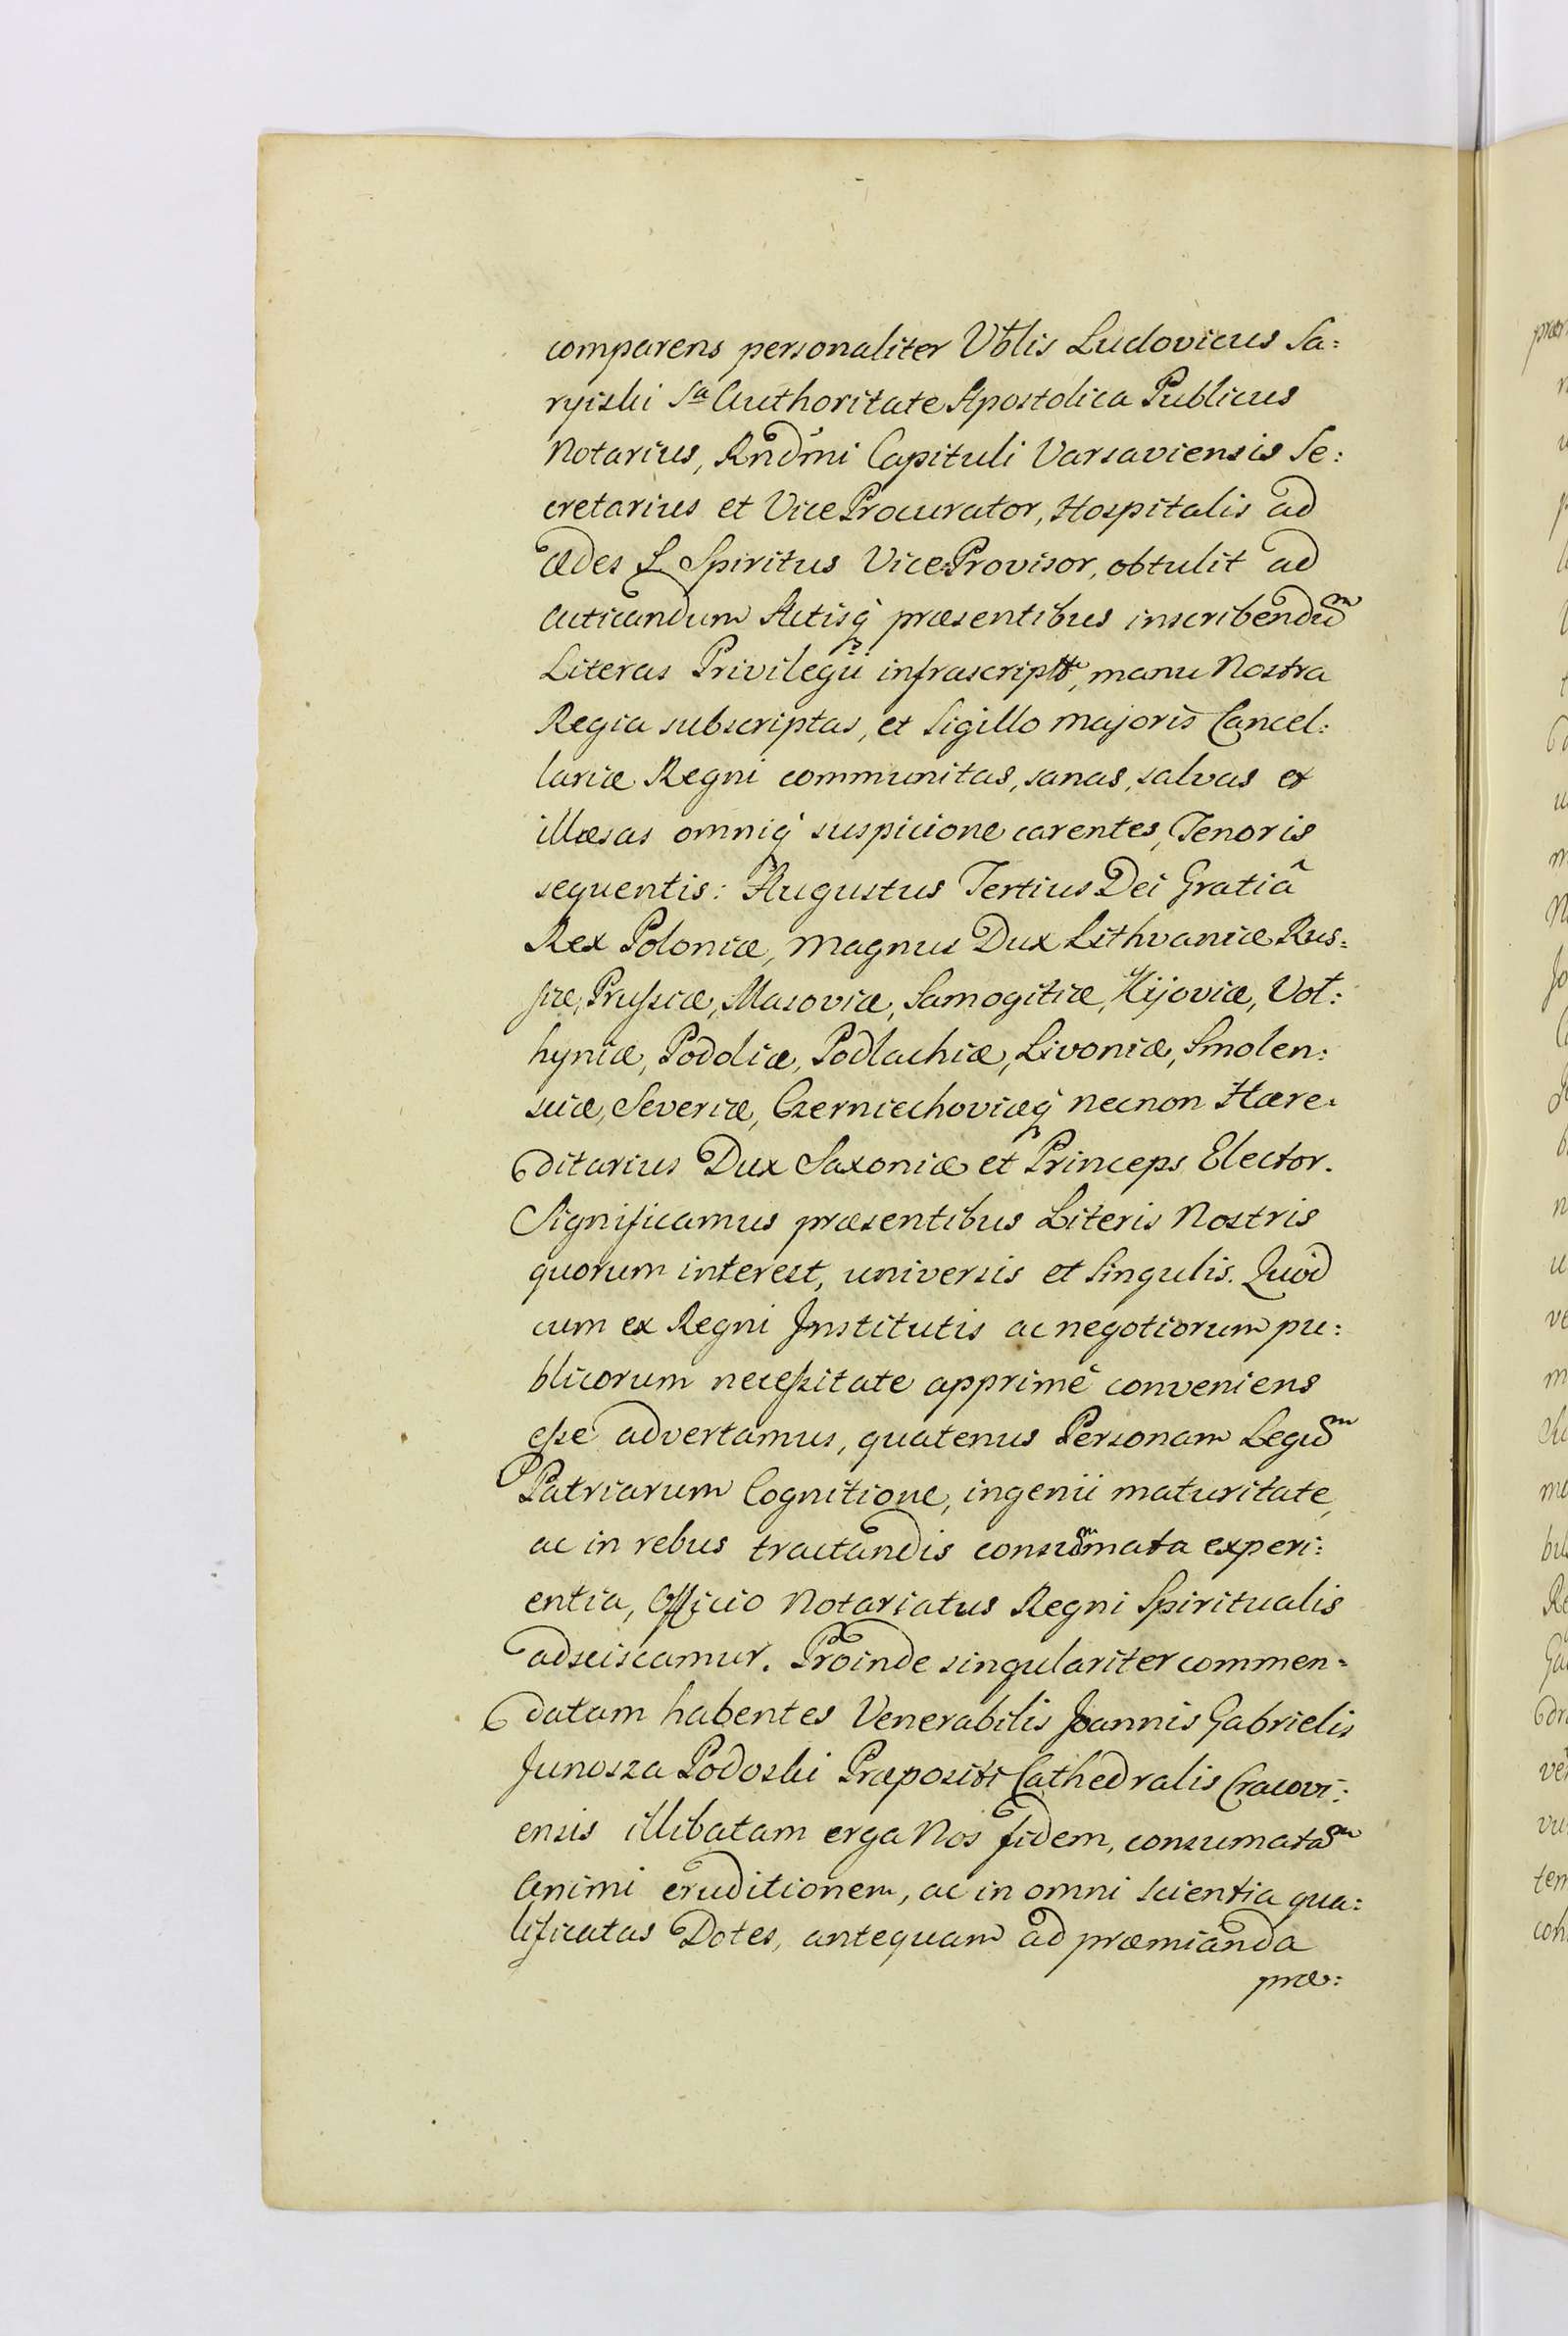 comparens personaliter Vblis Ludovicus Sa:
ryiski Sa Authoritate Apostolica Publicus
Notarius, Rndmi Capituli Varsaviensis Se:
cretarius et Vice Procurator, Hospitalis ad
ædes S. Spiritus Vice-Provisor, obtulit ad
acticandum Actisq præsentibus inscribendum
Literas Privilegii infrascriptt, manu Nostra
Regia subscriptas, et Sigillo majoris Cancel:
lariæ Regni communitas, sanas, salvas et
illæsas omniq suspicione carentes, Tenoris
sequentis: Augustus Tertius Dei Gratiâ
Rex Poloniæ, Magnus Dux Lithvaniæ Rus:
siæ, Prussiæ, Masoviæ, Samogitiæ, Kijoviæ, Vol:
hyniæ, Podoliæ, Podlachiæ, Livoniæ, Smolen:
sciæ, Severiæ, Czerniechoviæq necnon Hære:
ditarius Dux Saxoniæ et Princeps Elector.
Significamus præsentibus Literis Nostris
quorum interest, universis et Singulis. Quod
cum ex Regni Institutis ac negotiorum pu:
blicorum necessitate apprimè conveniens
esse advertamus, quatenus Personam Legum
Patriarum Cognitione, ingenii maturitate,
ac in rebus tractandis consummata experi:
entia, Officio Notariatus Regni Spiritualis
adsciscamur. Proinde singulariter commen:
datam habentes Venerabilis Joannis Gabrielis
Junosza Podoski Præpositi Cathedralis Cracovi:
ensis illibatam erga Nos fidem, consumatam
Animi eruditionem, ac in omni scientia qua:
lificatas Dotes, antequam ad præmianda
præ: